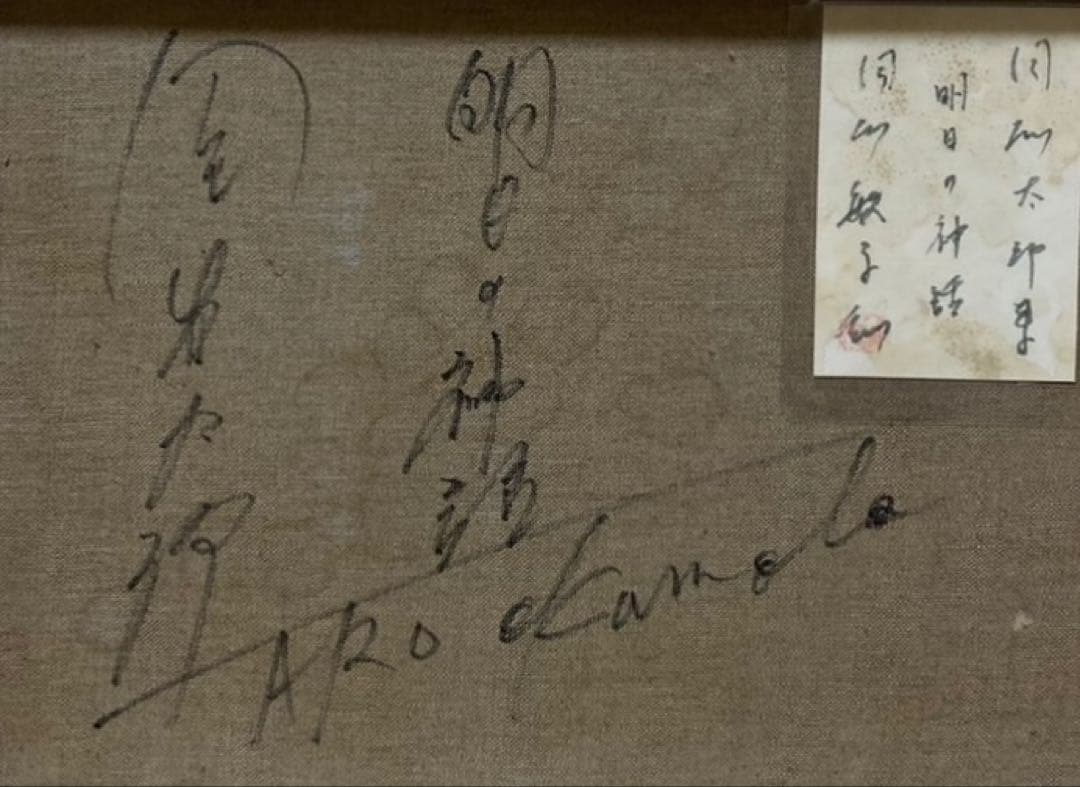 明日の神話
岡本太郎
TARO OKamoto
岡本太郎畢
明日の神話
岡本敏子